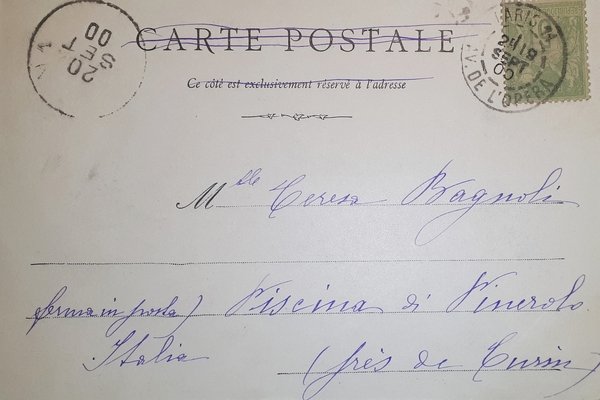 CARTE POSTALE
Ce côté est exclusivement réservé à l'adresse
Mlle Teresa Bagnoli
(ferma in posta) Piscina di Pinerolo
Italia (près de Turin)
20
SET
00
PARIS
19
SEPT
00
AV. DE L'OPÉRA